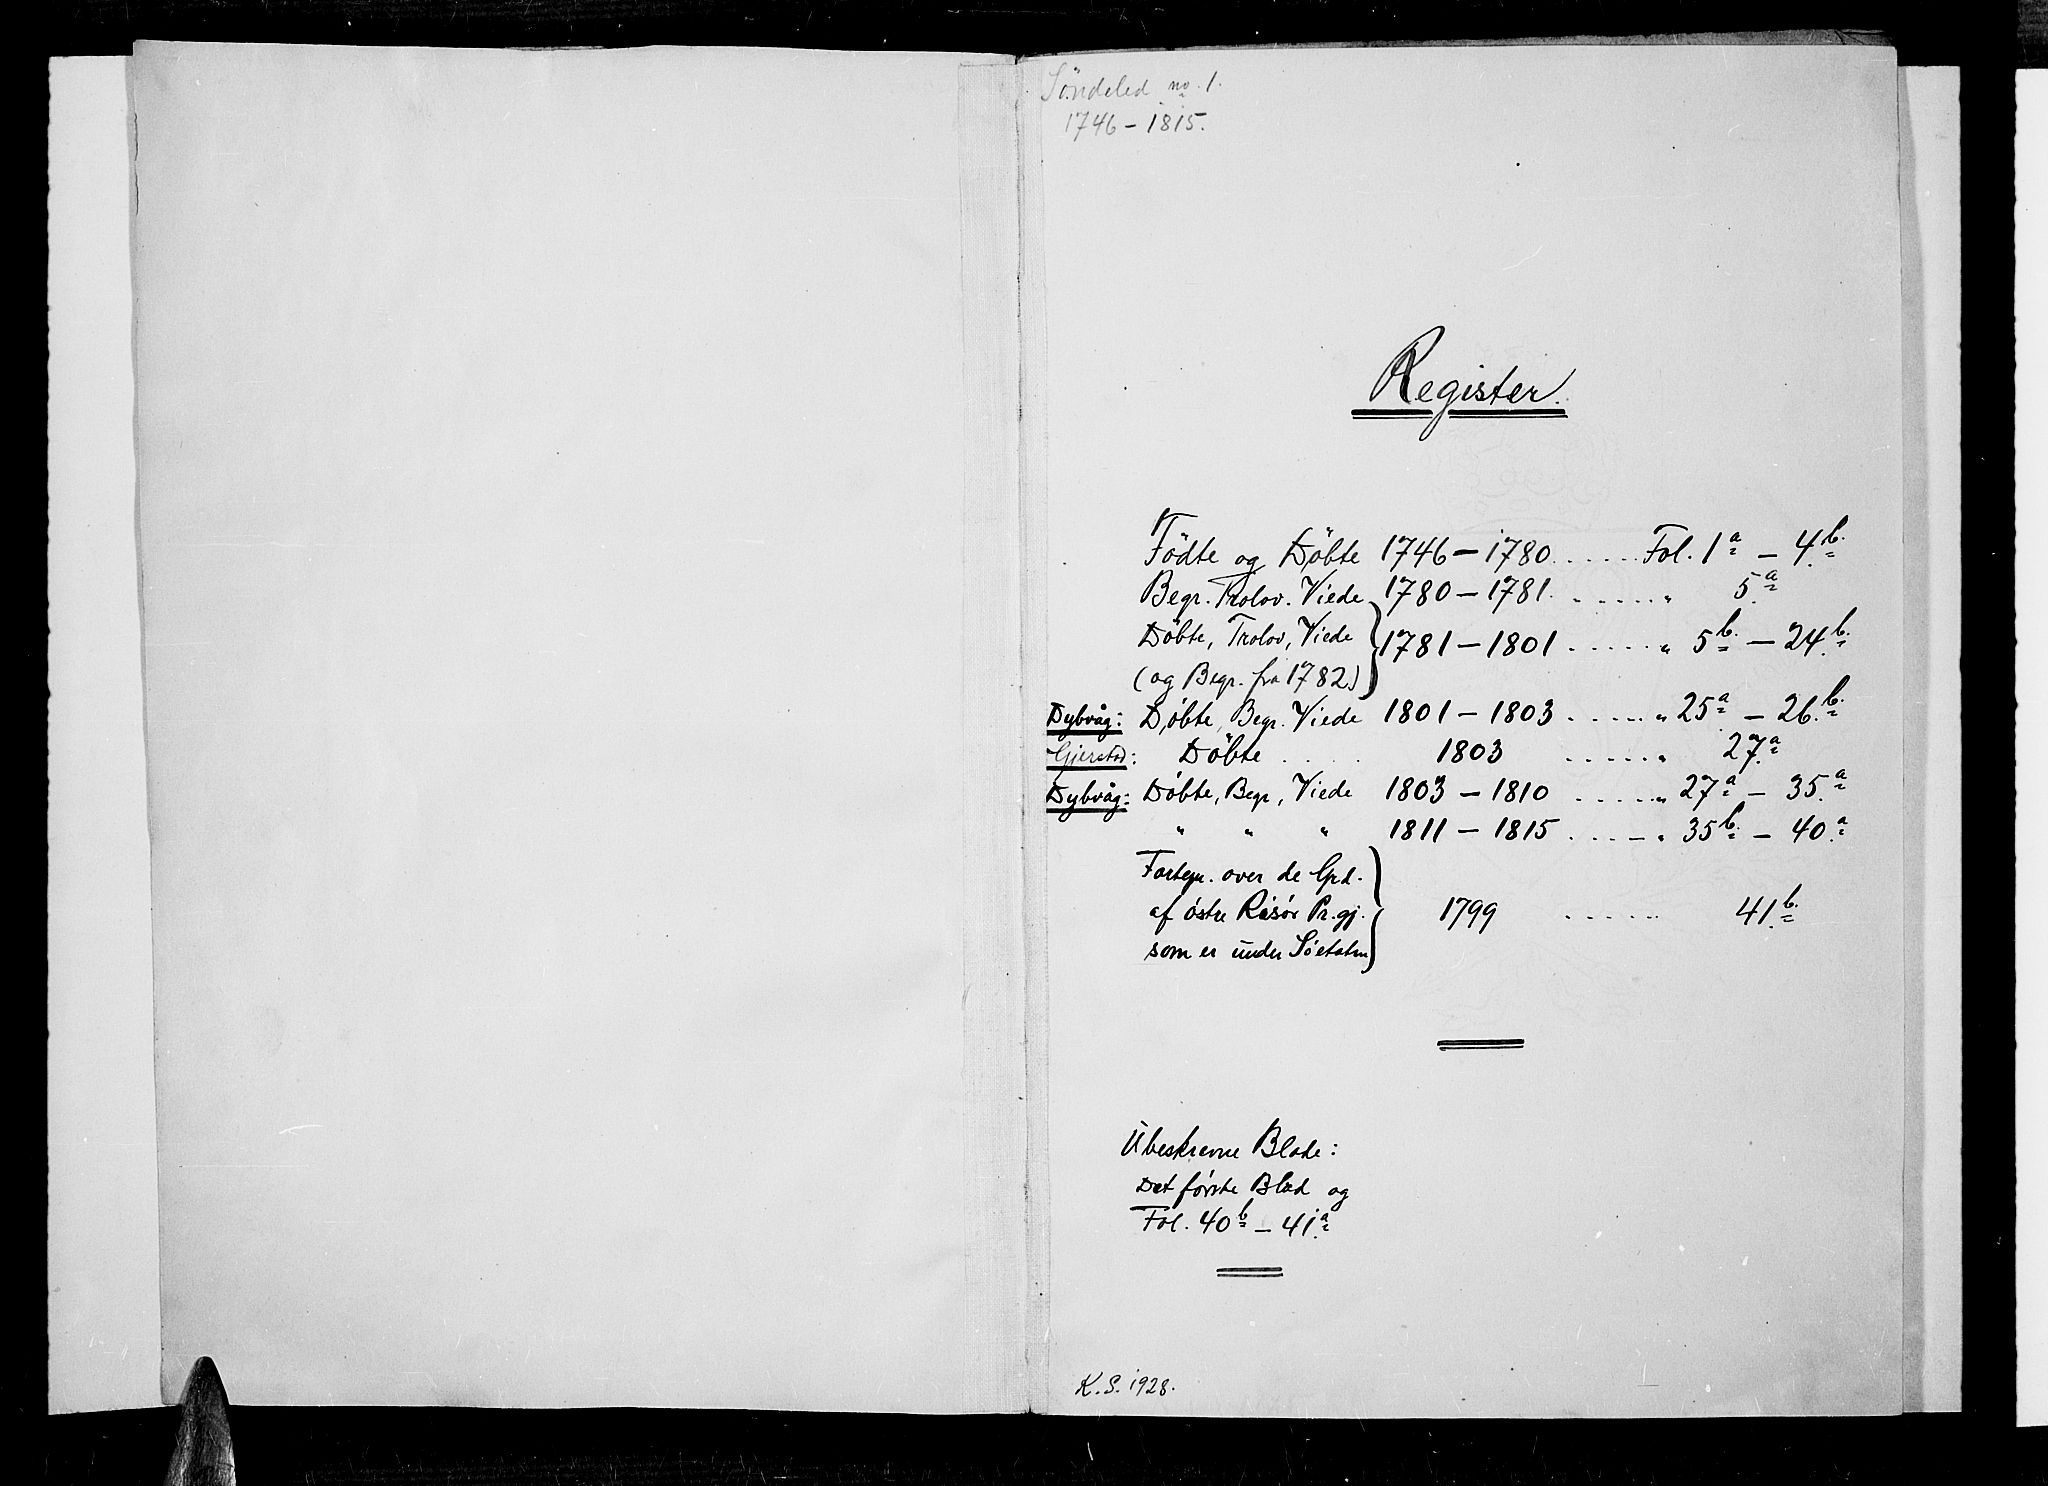 Söndeled no. 1.
1746 – 1815.
Register.
Födte og Döbte 1746 – 1780 ...... Fol. 1a – 4b.
Begr. Trolov. Viede 1780 – 1781 ...... " 5a
Döbte, Trolov, Viede } 1781 – 1801 ...... " 5b. – 24b.
(og Begr. fra 1782)
Dybvåg: Döbte, Begr. Viede 1801 – 1803 ...... " 25a – 26b.
Gjerstad: Döbte .... 1803 ...... " 27a
Dybvåg: Döbte, Begr, Viede 1803 – 1810 ...... " 27a – 35a
" " " 1811 – 1815 ...... " 35b. – 40a
Fortegn. over de Grd.
af östre Risör Pr.gj. } 1799 ...... 41b.
som er under Söetaten
Ubeskrevne Blade:
Det förste Blad og
Fol. 40b – 41a
K. S. 1928.